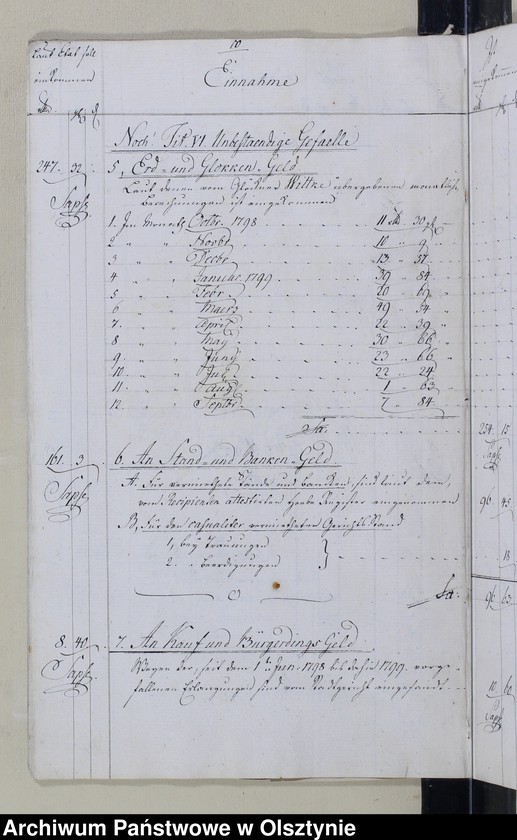 10
Laut Etat soll
einkommen
Einnahme
Noch. Tit. VI. Unbestaendige Gefaelle
247. 32.
5, Erd- und Glokken-Geld
Laut denen vom Glökner Wittke übergebenen monatliche
Berechnungen ist eingekommen
1. Im Monath Octbr. 1798 11 30
2 " " Novbr 10 " 9
3 " " Decbr 13 " 57
4 " " Januar. 1799 39 84
5 " " Febr 20 " 69
6 " " Maerz 49 " 54
7. " " April 22 " 39
8 " " May 30 " 66
9 " " Juny 23 " 66
10 " " July 22 " 24
11. " " Aug 1 " 63
12 " " Septbr 7 " 84
Sa.
254. 15
161. 3
6. An Stand- und Banken-Geld
A. Für vermiethete Stände und banken sind laut dem,
vom Recipienten attestirten Hebe Register eingenommen
96. 45
B, Für den casualiter vermietheten Gerichts Stand
1, bey Trauungen
2. " Beerdigungen
18
Sa.
96. 63
8. 40
7. An Kauf und BürgerdingsGeld
Wegen der, seit dem 1ten Jun. 1798 bis dahin 1799 vorge-
fallenen Erlangungen sind vom Stadtgericht eingesandt
10. 60
Archiwum Państwowe w Olsztynie